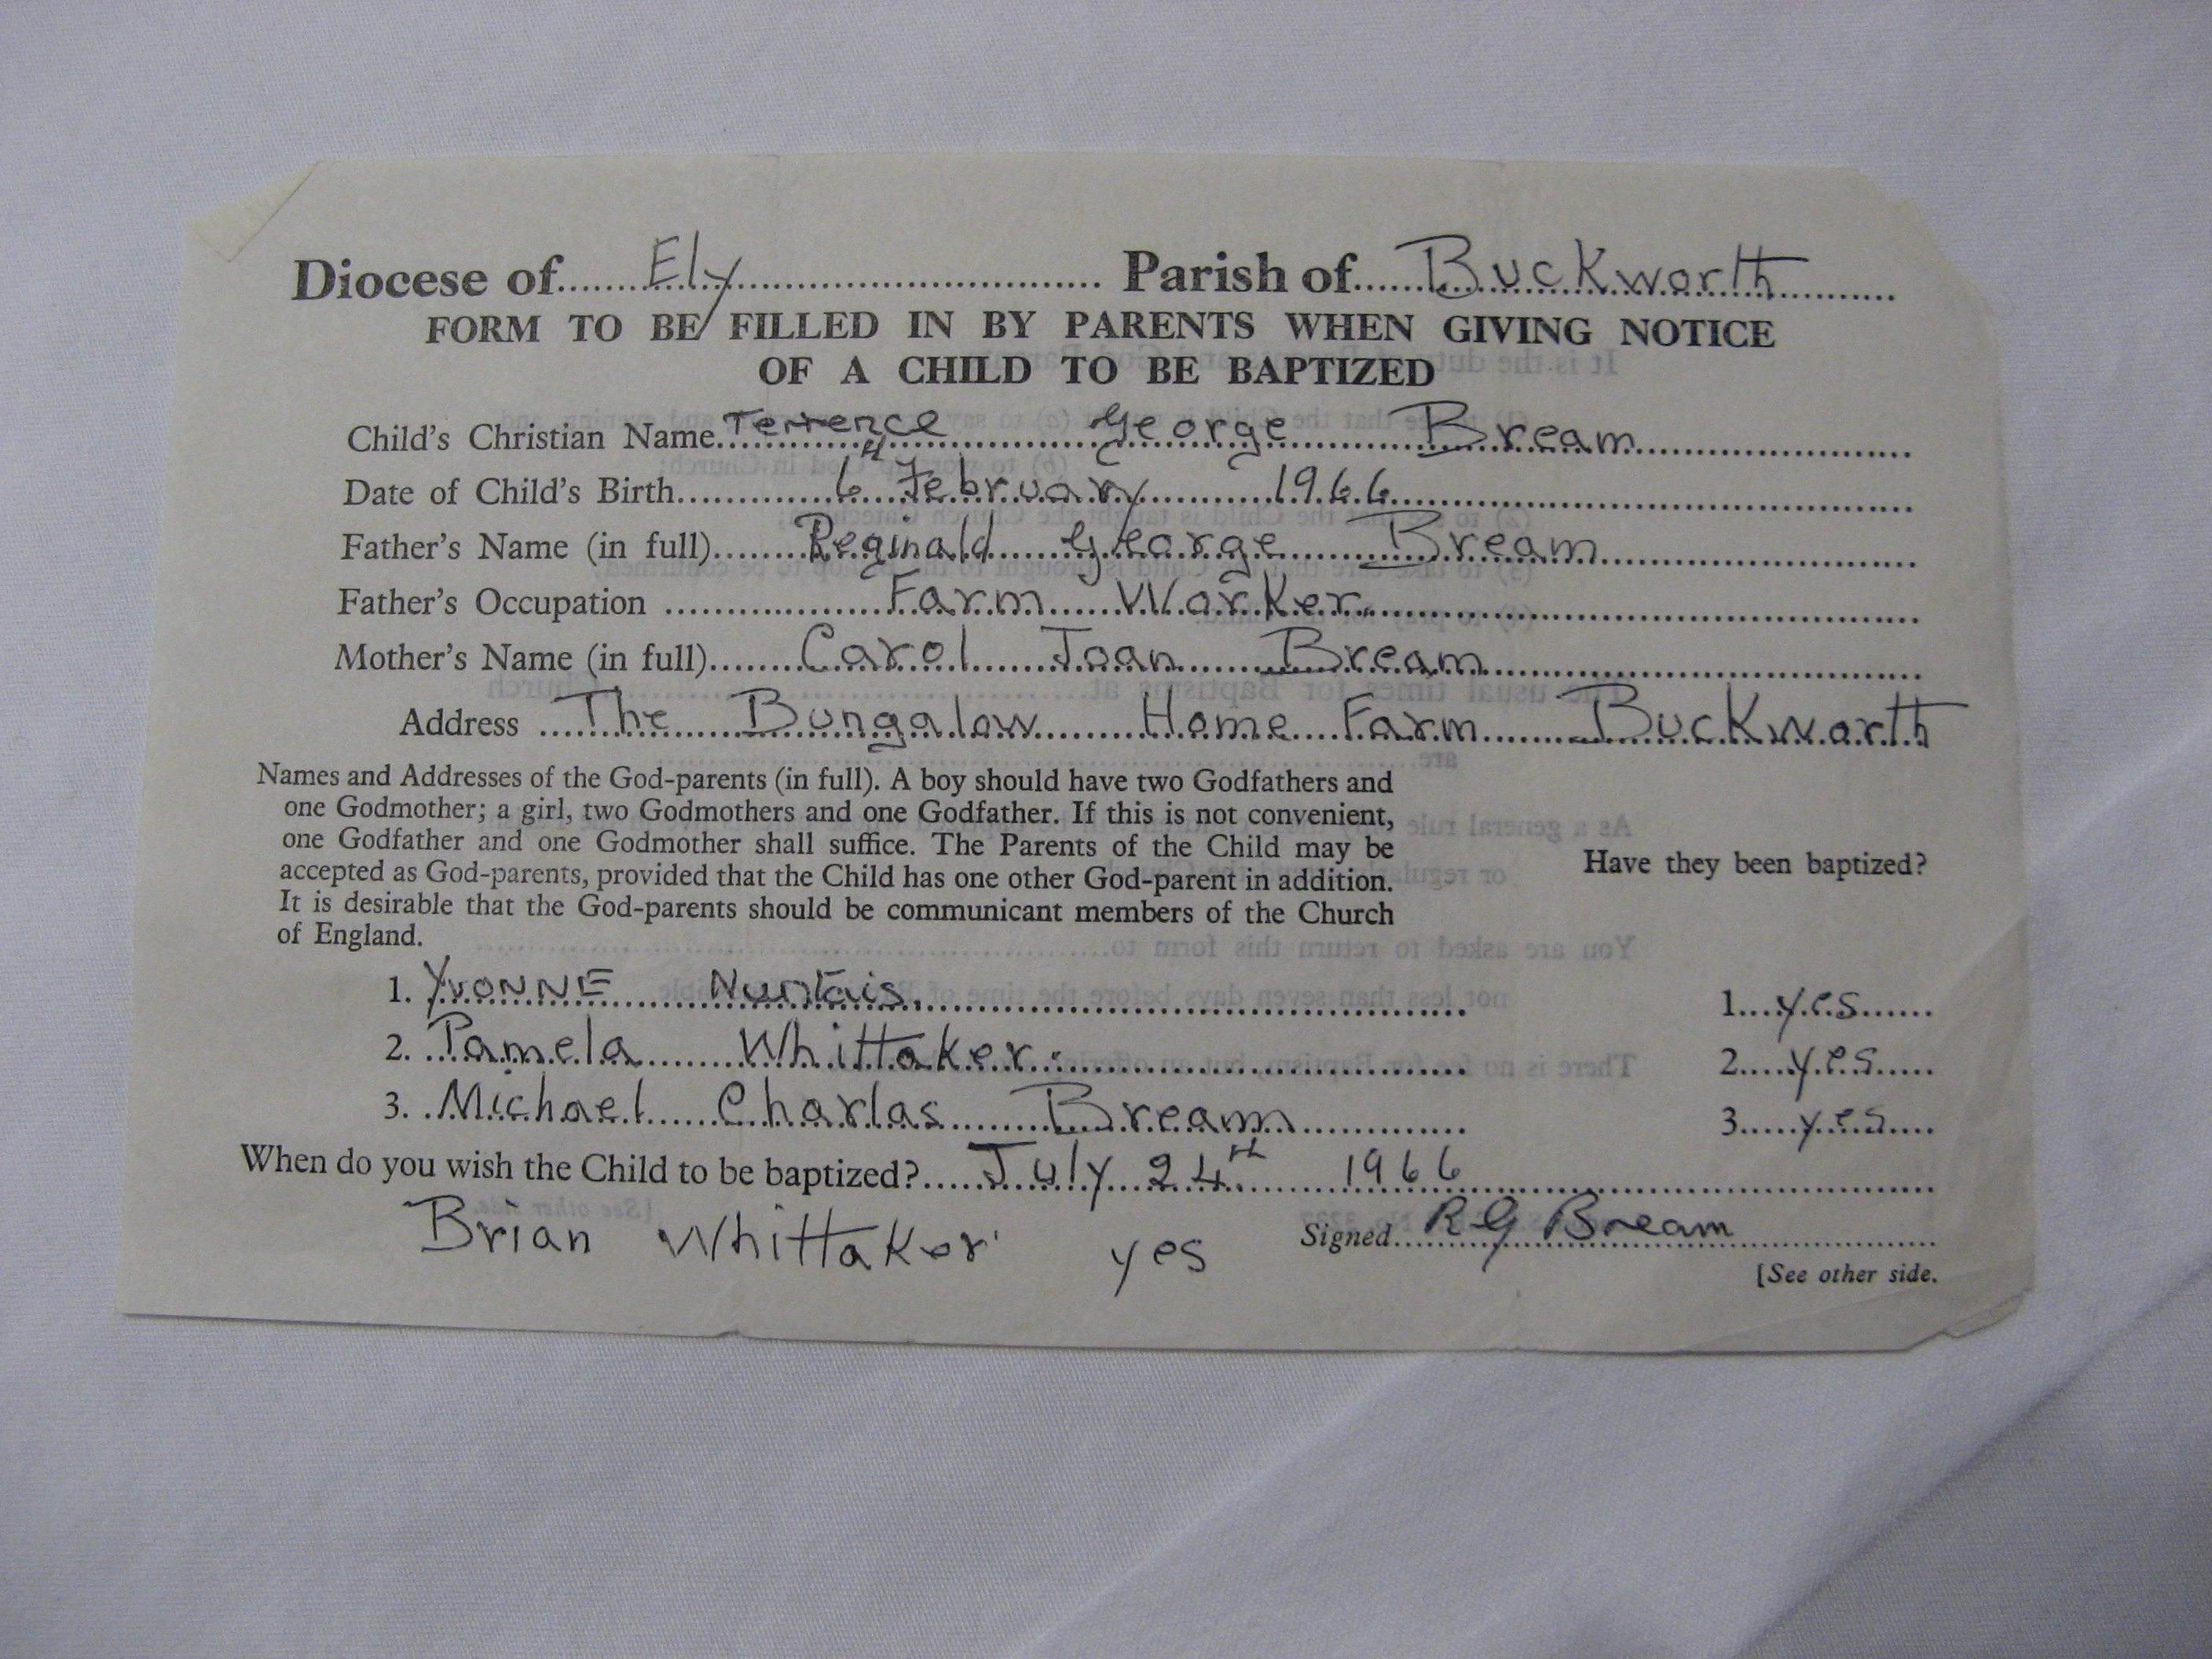 Diocese of Ely Parish of Buckworth
FORM TO BE FILLED IN BY PARENTS WHEN GIVING NOTICE
OF A CHILD TO BE BAPTIZED
Child's Christian Name Terrence George Bream
Date of Child's Birth 6th February 1966
Father's Name (in full) Reginald George Bream
Father's Occupation Farm Worker.
Mother's Name (in full) Carol Joan Bream
Address The Bungalow Home Farm Buckworth
Names and Addresses of the God-parents (in full). A boy should have two Godfathers and
one Godmother; a girl, two Godmothers and one Godfather. If this is not convenient,
one Godfather and one Godmother shall suffice. The Parents of the Child may be
accepted as God-parents, provided that the Child has one other God-parent in addition.
It is desirable that the God-parents should be communicant members of the Church
of England.
Have they been baptized?
1. YVONNE 1 yes
2. Pamela Whittaker. 2 yes
3. Michael Charlas Bream 3 yes
When do you wish the Child to be baptized? July 24th 1966
Brian Whittaker yes Signed R G Bream
[See other side.